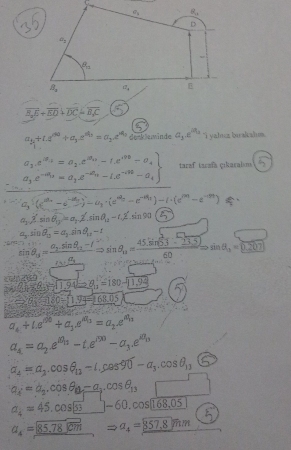 36
C
D
B₀
E
a₂
a₃
a₄
θ₁₂
θ₁₃
B₀E + ED + DC = B₀C (5)
(5)
a₄ + t.e^{i90} + a₃.e^{iθ₁₃} = a₂.e^{iθ₁₂} denkleminde a₃.e^{iθ₁₃} 'i yalnız bırakalım.
a₃.e^{iθ₁₃} = a₂.e^{iθ₁₂} − t.e^{i90} − a₄
a₃.e^{-iθ₁₃} = a₂.e^{-iθ₁₂} − t.e^{-i90} − a₄
taraf tarafa çıkaralım (5)
a₃.(e^{iθ₁₃} − e^{-iθ₁₃}) = a₂.(e^{iθ₁₂} − e^{-iθ₁₂}) − t.(e^{i90} − e^{-i90})
a₃.2.sinθ₁₃ = a₂.2.sinθ₁₂ − t.2.sin90 (5)
a₃.sinθ₁₃ = a₂.sinθ₁₂ − t
sinθ₁₃ = (a₂.sinθ₁₂ − t)/a₃ ⇒ sinθ₁₃ = (45.sin53 − 23,5)/60 ⇒ sinθ₁₃ = 0,207
11,94 ⇒ θ₁₃ = 180 − 11,94
180 − 11,94 = 168,05 (5)
a₄ + t.e^{i90} + a₃.e^{iθ₁₃} = a₂.e^{iθ₁₂}
a₄ = a₂.e^{iθ₁₂} − t.e^{i90} − a₃.e^{iθ₁₃}
a₄ = a₂.cosθ₁₂ − t.cos90 − a₃.cosθ₁₃ (5)
a₄ = a₂.cosθ₁₂ − a₃.cosθ₁₃
a₄ = 45.cos53 − 60.cos168,05 (5)
a₄ = 85,78 cm ⇒ a₄ = 857,8 mm